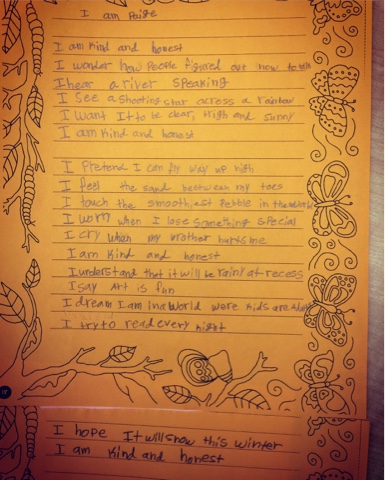 I am Paige
I am kind and honest
I wonder how People figured out how to talk
I hear a river speaking
I see a shooting star across a rainbow
I want It to be clear, brigh and sunny
I am kind and honest
I Pretend I can fly way up high
I feel the sand between my toes
I touch the smoothiest Pebble in the world
I worry when I lose something special
I cry when my brother hurts me
I am Kind and honest
I understand that it will be rainy at recess
I say Art is fun
I dream I am in a world were kids are
I try to read every night
I hope It will snow this winter
I am Kind and honest